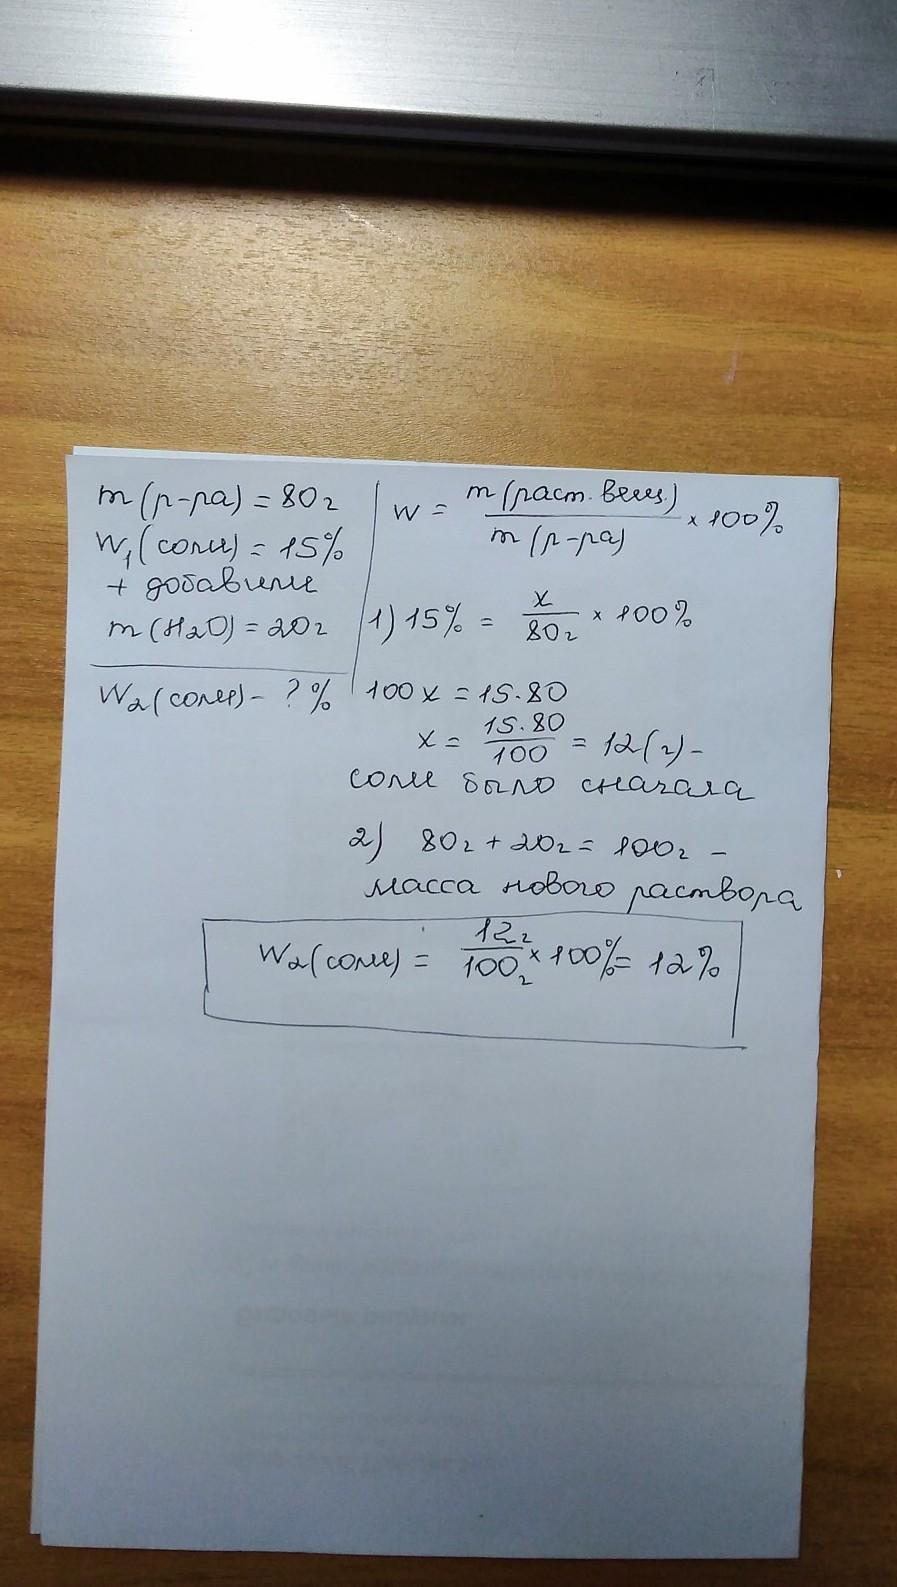 m(р-ра) = 80г
W₁(соли) = 15%
+ добавили
m(H₂O) = 20г
W₂(соли) - ? %
w = m(раст. вещ.) / m(р-ра) × 100%
1) 15% = x / 80г × 100%
100x = 15·80
x = 15·80 / 100 = 12(г) -
соли было сначала
2) 80г + 20г = 100г -
масса нового раствора
W₂(соли) = 12г / 100г × 100% = 12%